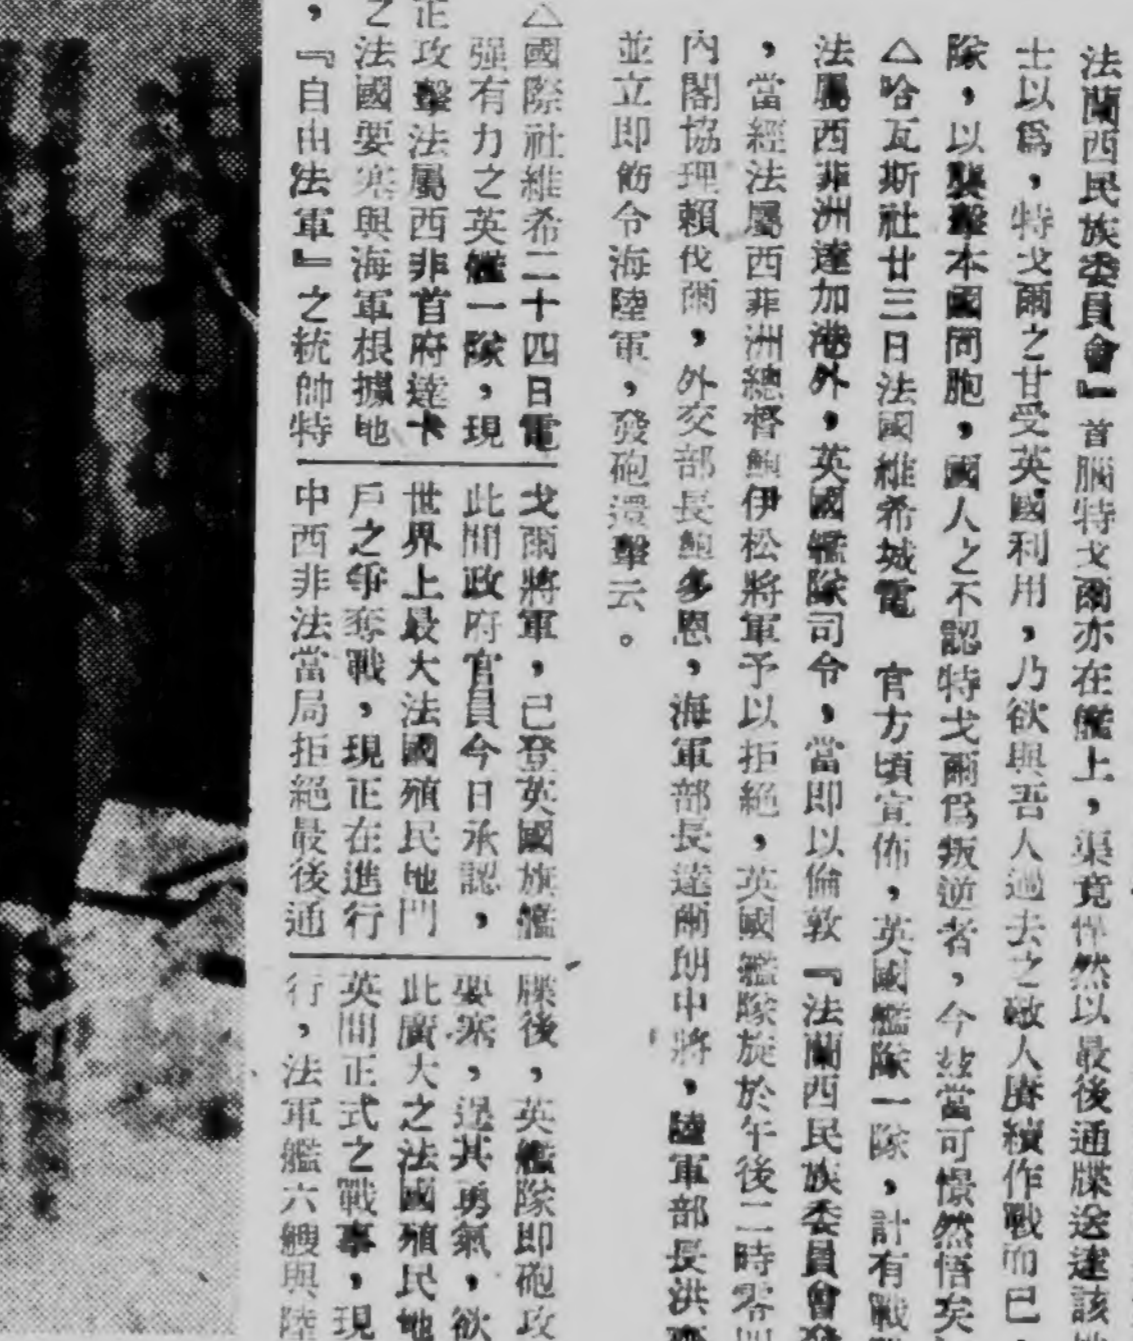 法蘭西民族委員會』首腦特戈爾亦在艦上，渠竟悍然以最後通牒送達該
士以爲，特戈爾之甘受英國利用，乃欲與吾人過去之敵人賡續作戰而已
隊，以襲擊本國同胞，國人之不認特戈爾爲叛逆者，今茲當可憬然悟矣
△哈瓦斯社廿三日法國維希城電　官方頃宣佈，英國艦隊一隊，計有戰
法屬西非洲達加港外，英國艦隊司令，當即以倫敦『法蘭西民族委員會
，當經法屬西非洲總督鮑伊松將軍予以拒絕，英國艦隊旋於午後二時零四
內閣協理賴伐爾，外交部長鮑多恩，海軍部長達爾朗中將，陸軍部長洪
並立即飭令海陸軍，發砲還擊云。
△國際社維希二十四日電
强有力之英艦一隊，現
正攻擊法屬西非首府達卡
之法國要塞與海軍根據地
，『自由法軍』之統帥特
戈爾將軍，已登英國旗艦
此間政府官員今日承認，
世界上最大法國殖民地門
戶之爭奪戰，現正在進行
中西非法當局拒絕最後通
牒後，英艦隊即砲攻
要塞，逞其勇氣，欲
此廣大之法國殖民地
英間正式之戰事，現
行，法軍艦六艘與陸